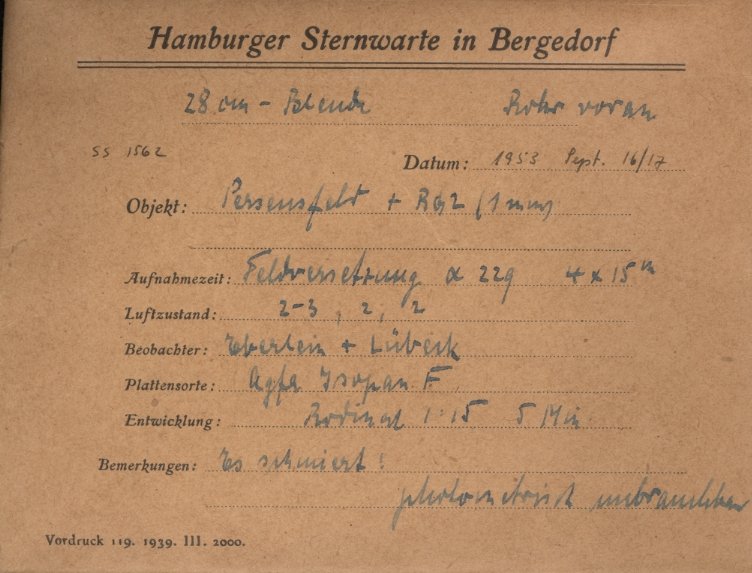 Hamburger Sternwarte in Bergedorf
28 cm - Blende Rohr voran
SS 1562
Datum: 1953 Sept. 16/17
Objekt: Perseusfeld + RG2 (1 mm)
Aufnahmezeit: Feldversetzung α 229 4 x 15ᵐ
Luftzustand: 2-3, 2, 2
Beobachter: Eberlein + Lübeck
Plattensorte: Agfa Isopan F
Entwicklung: Rodinal 1:15 5 Min
Bemerkungen: Es schmiert!
photometrisch unbrauchbar
Vordruck 119. 1939. III. 2000.